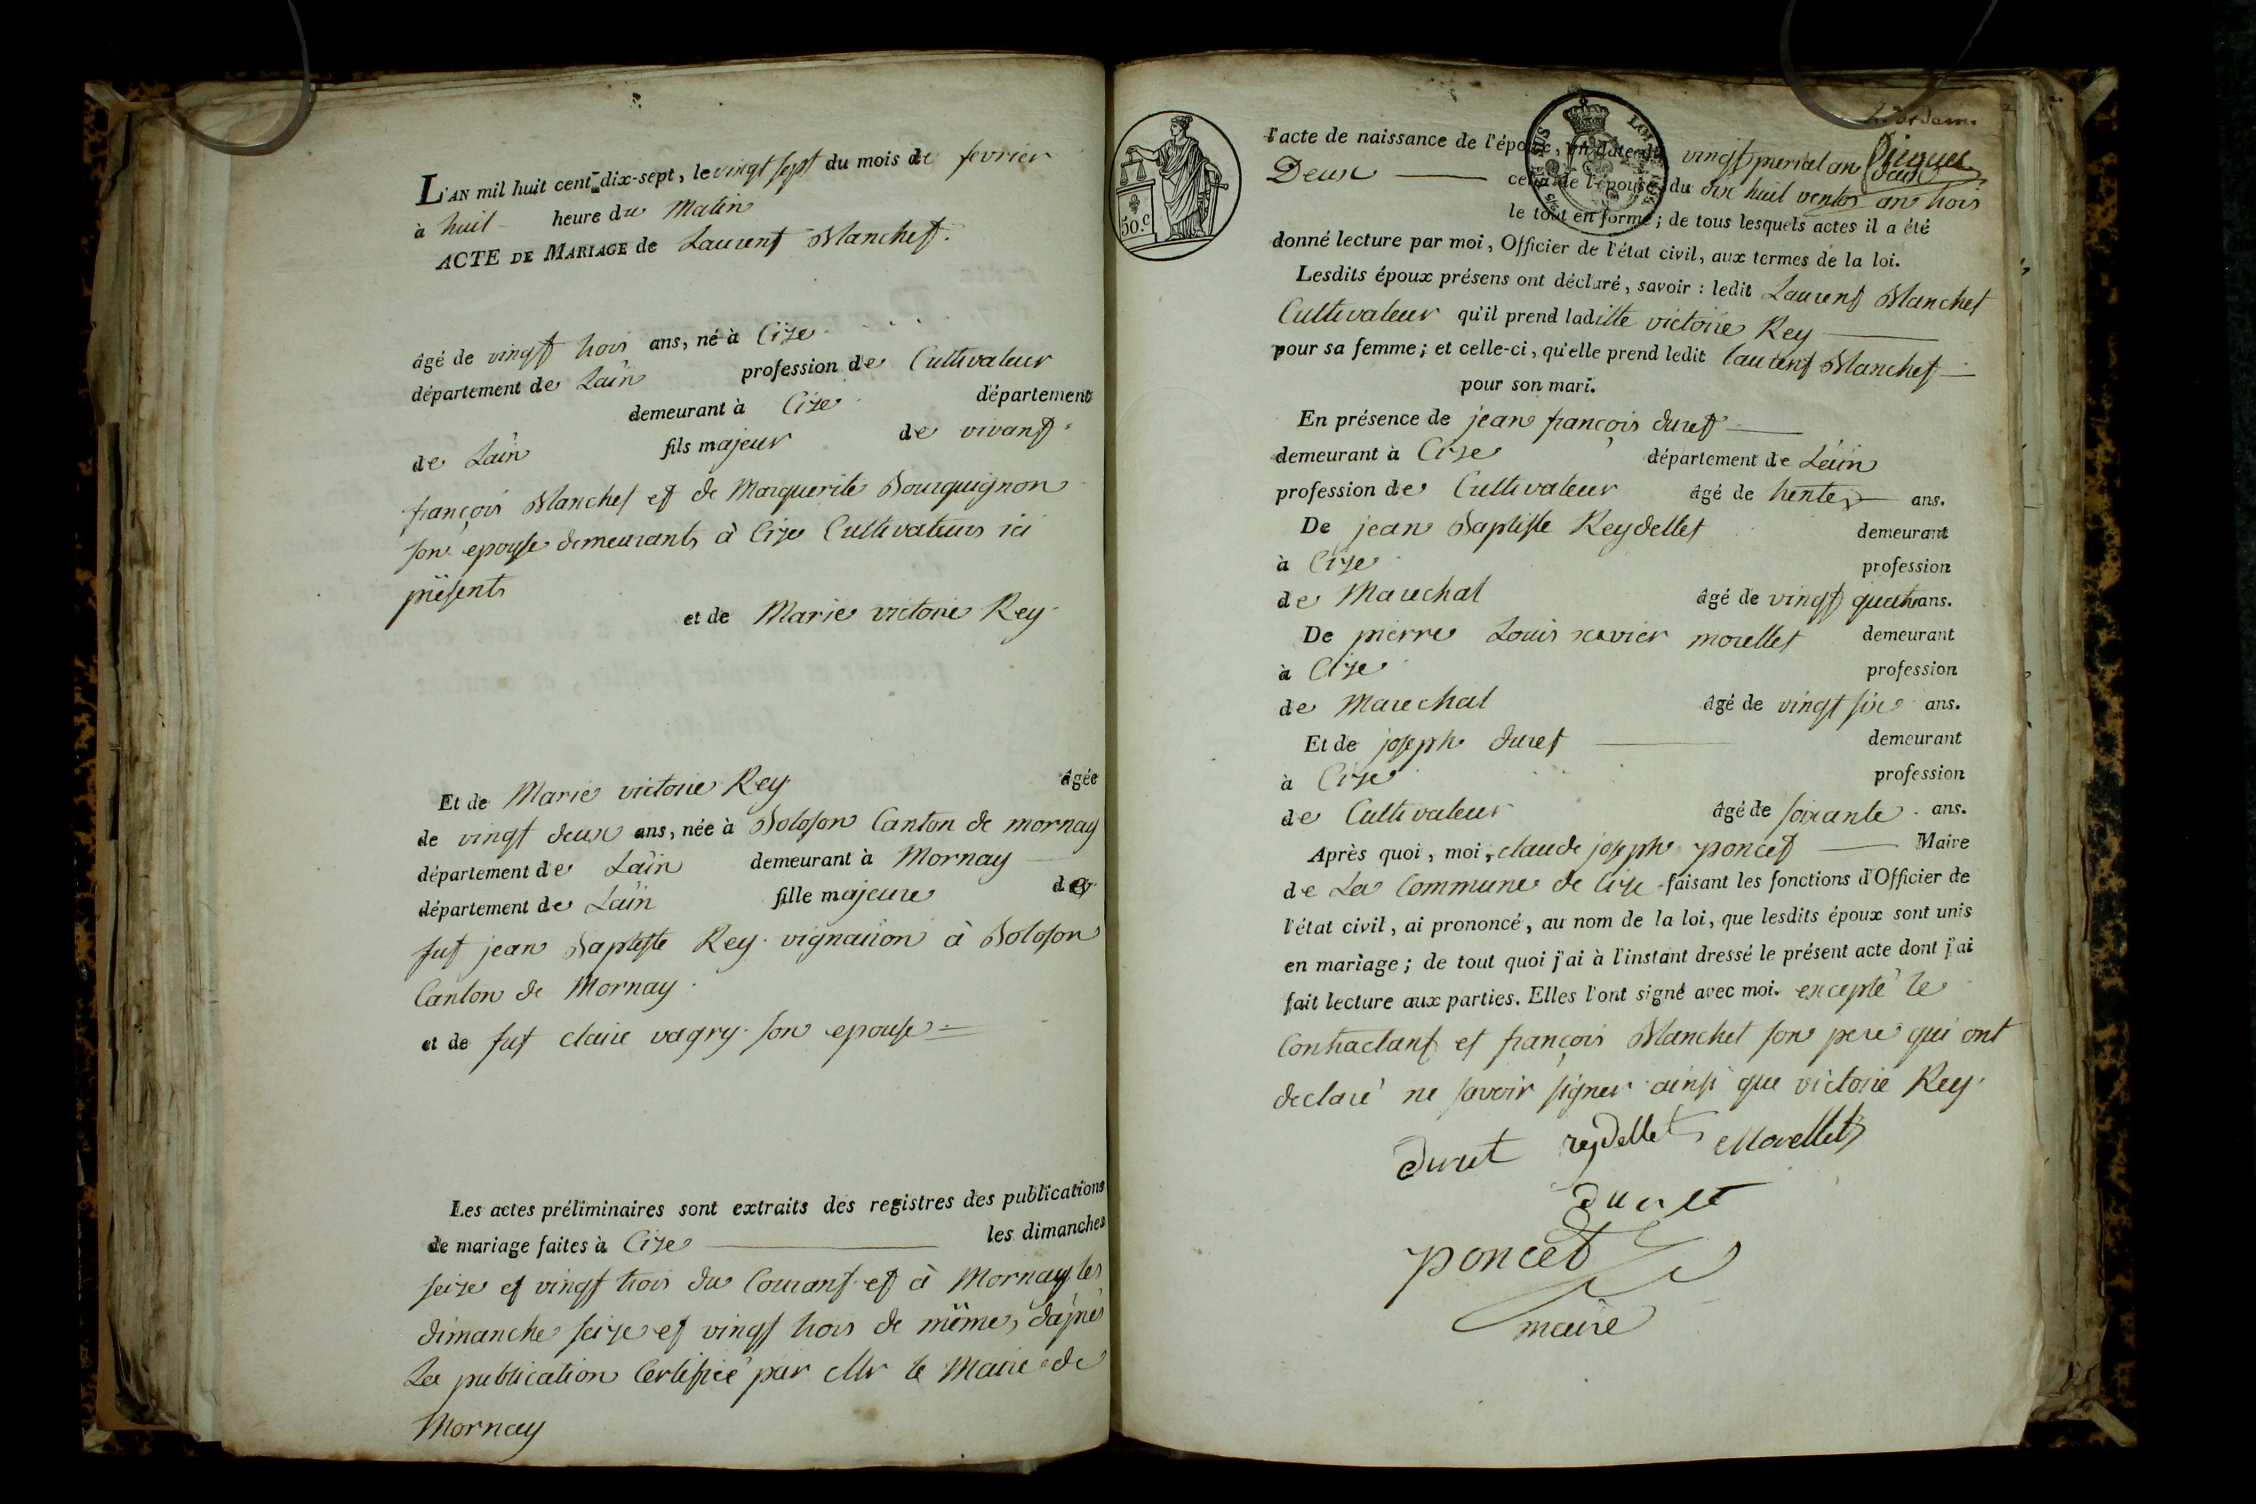 L'AN mil huit cent dix-sept, le vingt sept du mois de fevrier
à huit heure du Matin
ACTE DE MARIAGE de Laurent Blanchet.
âgé de vingt trois ans, né à Cize
département de Lain profession de Cultivateur
demeurant à Cize département
de Lain fils majeur de vivant
françois Blanchet et de Marguerite Bourguignon
son epouse demeurants à Cize Cultivateurs ici
présents
et de Marie victoire Rey
Et de Marie victoire Rey âgée
de vingt deux ans, née à Bolozon Canton de mornay
département de Lain demeurant à Mornay
département de Lain fille majeure de
fut jean Baptiste Rey vigneron à Bolozon
Canton de Mornay
et de fut claire vagry son epouse
Les actes préliminaires sont extraits des registres des publications
de mariage faites à Cize les dimanches
seize et vingt trois du Courant et à Mornay les
dimanche seize et vingt trois de même, d'après
La publication Certifiée par Mr le Maire de
Mornay
50.c
l'acte de naissance de l'époux, en date du vingt prerial an
Deux celui de l'épouse, du dix huit ventos an trois
le tout en forme; de tous lesquels actes il a été
donné lecture par moi, Officier de l'état civil, aux termes de la loi.
Lesdits époux présens ont déclaré, savoir : ledit Laurent Blanchet
Cultivateur qu'il prend laditte victoire Rey
pour sa femme; et celle-ci, qu'elle prend ledit laurent Blanchet
pour son mari.
En présence de jean françois duret
demeurant à Cize département de Lain
profession de Cultivateur âgé de trente ans.
De jean Baptiste Reydellet demeurant
à Cize profession
de Marechal âgé de vingt quatre ans.
De pierre Louis xavier morellet demeurant
à Cize profession
de Marechal âgé de vingt six ans.
Et de joseph duret demeurant
à Cize profession
de Cultivateur âgé de soixante ans.
Après quoi, moi, claude joseph poncet Maire
de La Commune de Cize faisant les fonctions d'Officier de
l'état civil, ai prononcé, au nom de la loi, que lesdits époux sont unis
en mariage; de tout quoi j'ai à l'instant dressé le présent acte dont j'ai
fait lecture aux parties. Elles l'ont signé avec moi. excepté le
Contractant et françois Blanchet son pere qui ont
declaré ne savoir signer ainsi que victoire Rey
duret reydellet Morellet
duret
poncet
maire